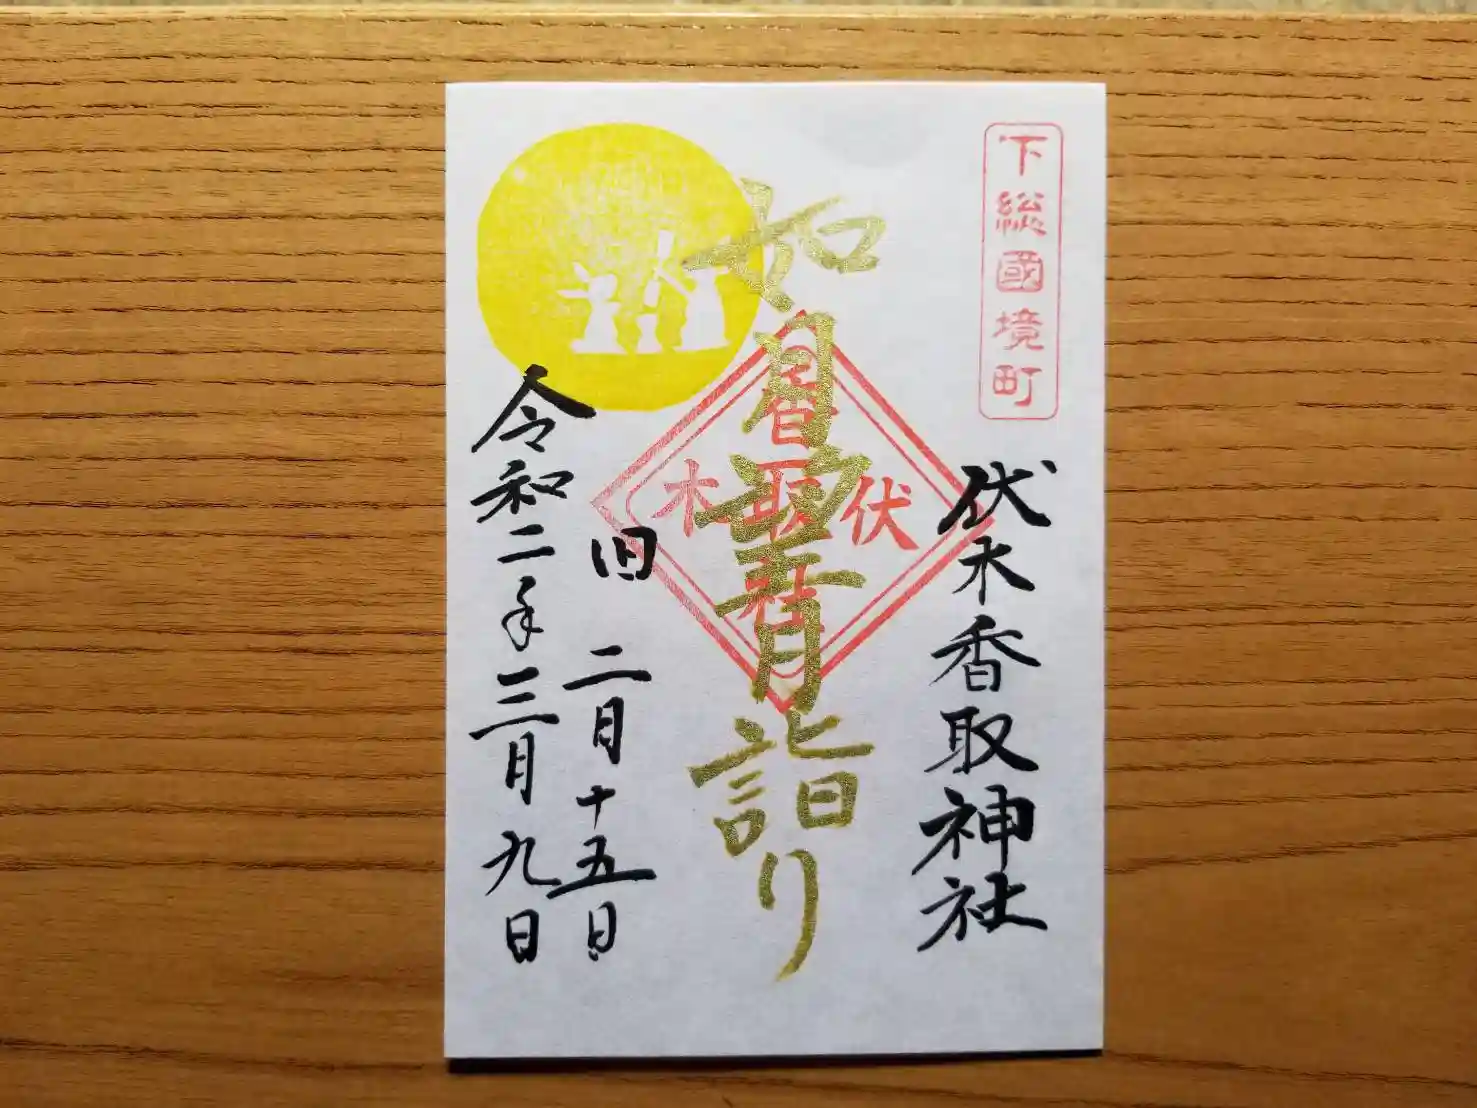 下総國境町
伏木香取神社
如月望月詣り
伏木
香取社
旧 二月十五日
令和二年三月九日